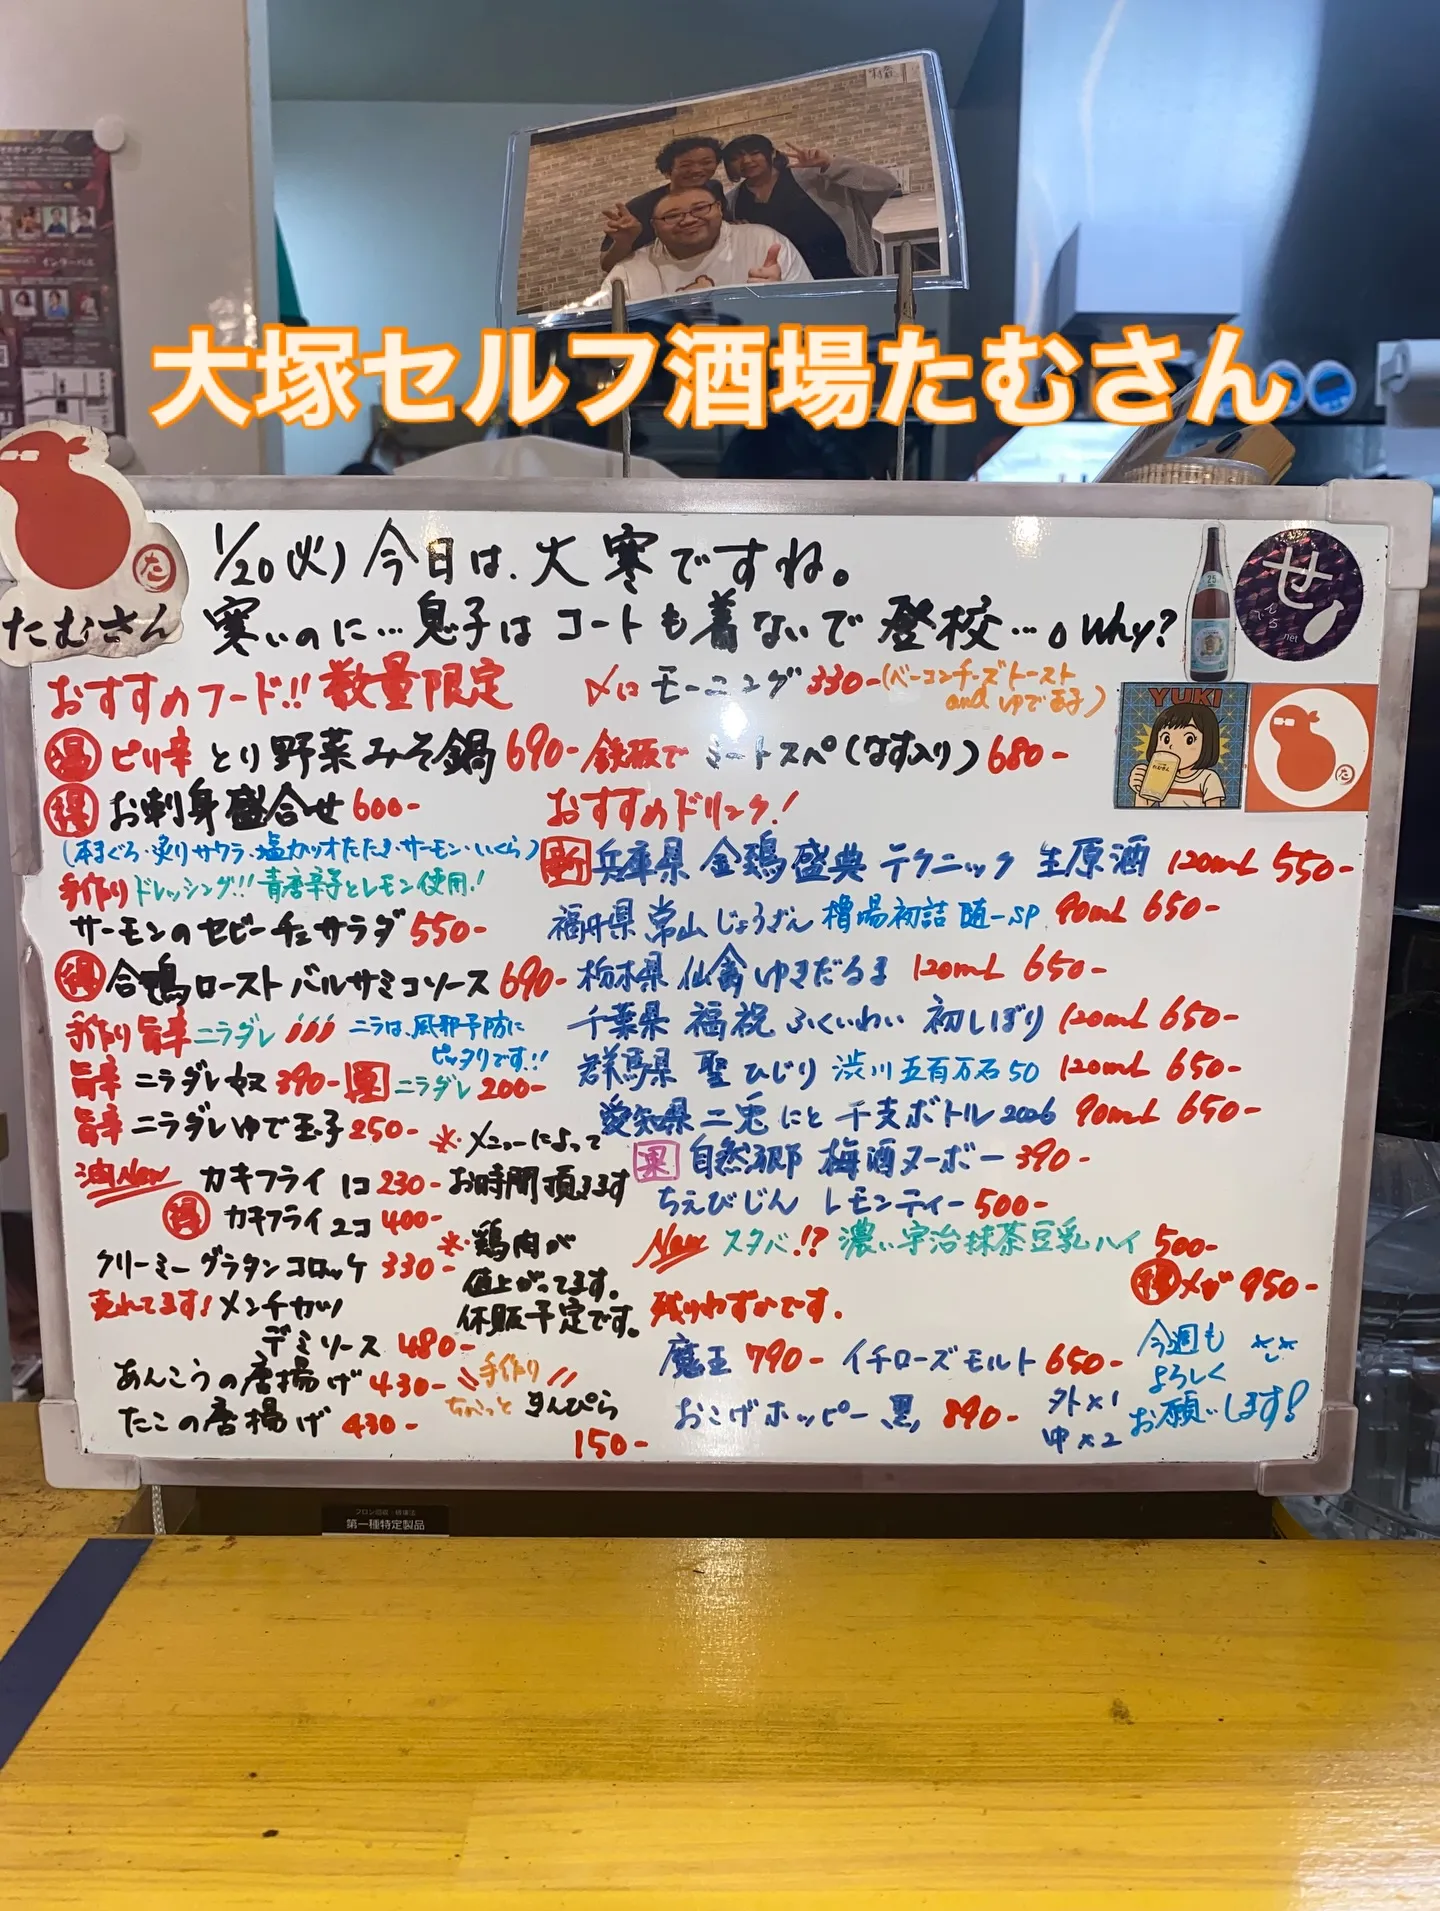 大塚セルフ酒場たむさん
たむさん
た
1/20(火) 今日は、大寒ですね。
寒いのに…息子はコートも着ないで登校…。Why?
25
せ
んべろ
net
YUKI
おすすめフード!! 数量限定
〆にモーニング 330-(ベーコンチーズトースト
and ゆで玉子)
温 ピリ辛 とり野菜みそ鍋 690-
鉄板で ミートスパ(なす入り) 680-
得 お刺身盛合せ 600-
(本まぐろ・炙りサワラ・塩カツオたたき・サーモン・いくら)
手作りドレッシング!! 青唐辛子とレモン使用!
サーモンのセビーチェサラダ 550-
得 合鴨ロースト バルサミコソース 690-
手作り旨辛 ニラダレ
ニラは、風邪予防に
ピッタリです!!
旨辛 ニラダレ奴 390-
ニラダレ 200-
旨辛 ニラダレゆで玉子 250-
※メニューによって
お時間頂きます
油New カキフライ 1コ 230-
得 カキフライ 2コ 400-
クリーミーグラタンコロッケ 330-
※鶏肉が
値上がってます。
休販予定です。
売れてます! メンチカツ
デミソース 480-
あんこうの唐揚げ 430-
たこの唐揚げ 430-
\\手作り//
ちょこっと きんぴら
150-
おすすめドリンク!
新 兵庫県 金鵄盛典 テクニック 生原酒 120mL 550-
福井県 常山 じょうざん 槽場初詰 随一SP 90mL 650-
栃木県 仙禽 ゆきだるま 120mL 650-
千葉県 福祝 ふくいわい 初しぼり 120mL 650-
群馬県 聖 ひじり 渋川五百万石50 120mL 650-
愛知県 二兎 にと 干支ボトル 2026 90mL 650-
果 自然郷 梅酒ヌーボー 390-
ちえびじん レモンティー 500-
New スタバ!? 濃い宇治抹茶豆乳ハイ 500-
得 メガ 950-
残りわずかです。
魔王 790- イチローズモルト 650-
おこげホッピー黒 890- 外×1
中×2
今週も
よろしく
お願いします!
第一種特定製品